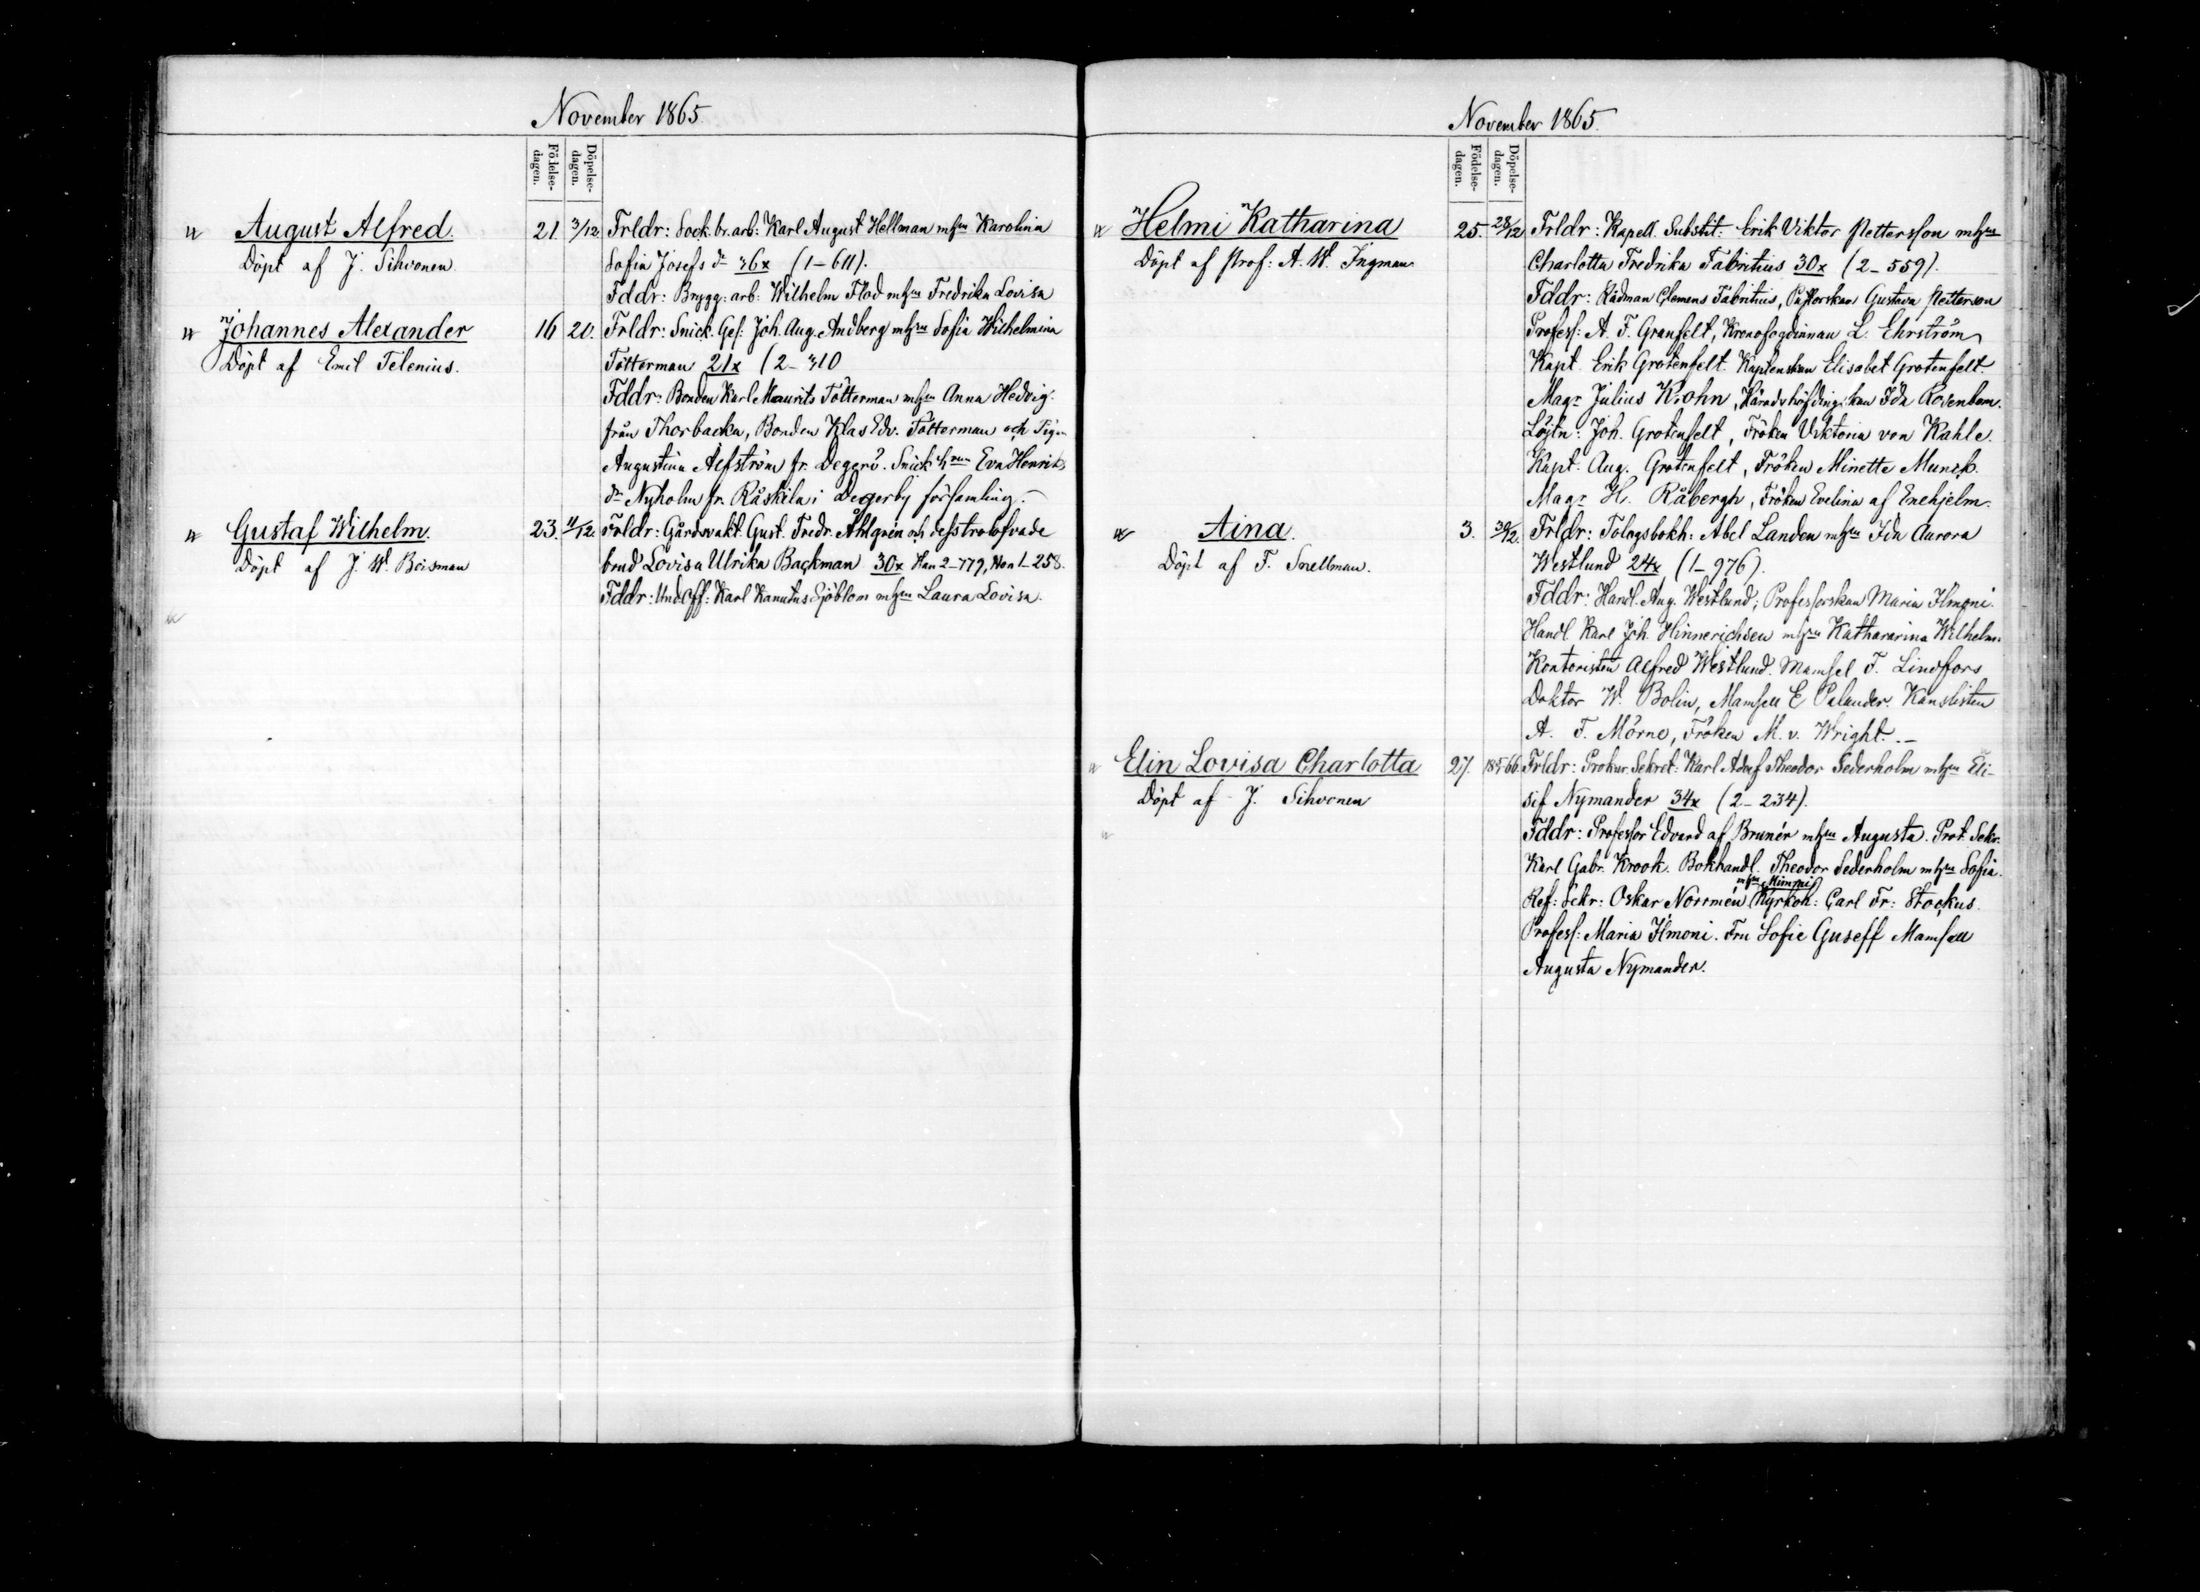 November 1865.
Födelse-
dagen.
Döpelse-
dagen.
August Alfred.
Döpt af J. Sihvonen.
21. 3/12.
Frldr: Sock. br. arb: Karl August Hellman m hu Karolina
Sofia Josefs dr 36x (1-611).
Fddr: Brygg: arb: Wilhelm Flod m hu Fredrika Lovisa
Johannes Alexander
Döpt af Emil Telenius.
16 20.
Frldr: Snick. Ges: Joh. Aug. Andberg m hu Sofia Wilhelmina
Tötterman 21x (2-310
Fddr: Bonden Karl Maurits Tötterman m hu Anna Hedvig.
från Thorbacka, Bonden Klas Edv. Tötterman och Pig.
Augustina Alfström fr. Degerö. Snick Eva Henrik
dr Nyholm fr. Råskila i Degerby församling.
Gustaf Wilhelm.
Döpt af J. W. Boisman
23. 11/12.
Frldr: Gårdsvakt. Gust. Fredr. Ahlgrén och dess trolofvade
brud Lovisa Ulrika Backman 30x Han 2-779, Hon 1-258.
Fddr: Und Off: Karl Kanutus Sjöblom m hu Laura Lovisa.
November 1865.
Födelse-
dagen.
Döpelse-
dagen.
Helmi Katharina
Döpt af Prof: A. W. Ingman
25. 28/12
Frldr: Kapell. Substit: Erik Viktor Pettersson m hu
Charlotta Fredrika Fabritius 30x (2-559).
Fddr: Rådman Clemens Fabritius, Pastorskan Gustava Petterson
Profess: A. F. Granfelt, Kronofogdinnan L. Ehrström
Kapt. Erik Grotenfelt. Kaptenskan Elisabet Grotenfelt.
Magr Julius Krohn, Häradshöfdingskan Ida Rosenbom.
Löjtn: Joh. Grotenfelt, Fröken Viktoria von Kahle.
Kapt. Aug. Grotenfelt, Fröken Minette Munck.
Magr H. Råbergh, Fröken Evelina af Enehjelm.
Aina.
Döpt af F. Snellman.
3. 30/12.
Frldr: Tologsbokh: Abel Landen m hu Ida Aurora
Westlund 24x (1-976).
Fddr: Handl. Aug. Westlund; Professorskan Maria Ilmoni.
Handl. Karl Joh. Hinnerichsen m hu Kathararina Wilhelm.
Kontoristen Alfred Westlund. Mamsel F. Lindfors
Doktor W. Bolin, Mamsell E Palander. Kanslisten
A. F. Mörne, Fröken M. v. Wright.
Elin Lovisa Charlotta
Döpt af J. Sihvonen
27. 18 5/1 66
Frldr: Prokur. Sekret: Karl Adolf Theodor Sederholm m hu Eli-
sif Nymander 34x (2-234).
Fddr: Professor Edvard af Brunér m hu Augusta. Prot. Sekr.
Karl Gabr. Krook. Bokhandl. Theodor Sederholm m hu Sofia.
m hu Mimmi
Ref: Sekr: Oskar Norrmén Kyrkoh: Carl Fr: Stockus.
Profess: Maria Ilmoni. Fru Sofie Guseff Mamsell
Augusta Nymander.